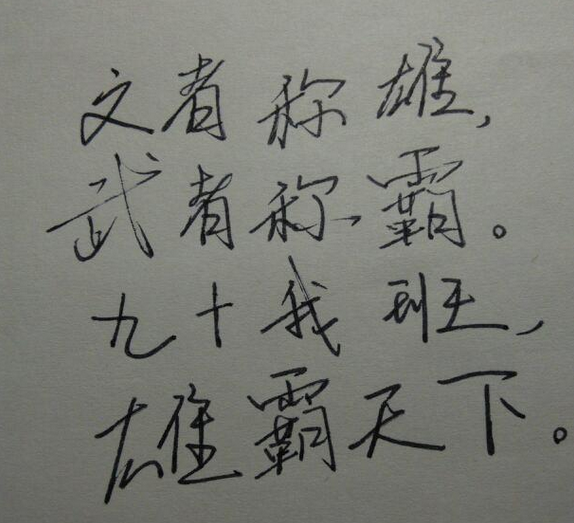 文者称雄,
武者称霸。
九十我班,
雄霸天下。